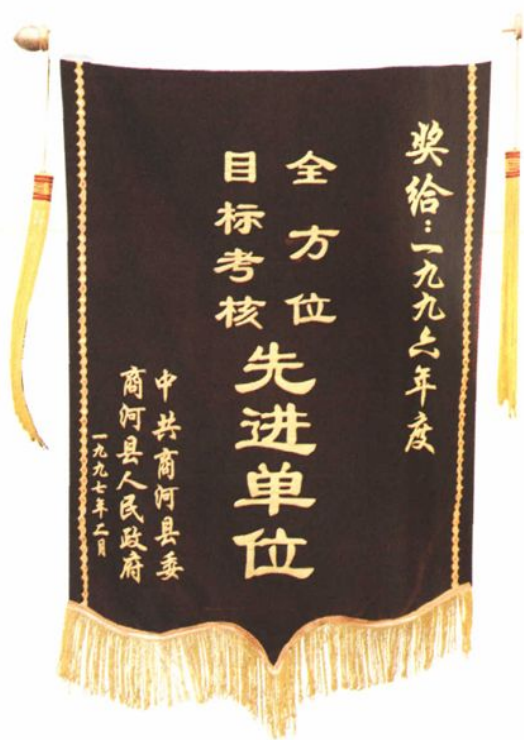 奖给：一九九六年度
全方位
目标考核
先进单位
中共商河县委
商河县人民政府
一九九七年二月